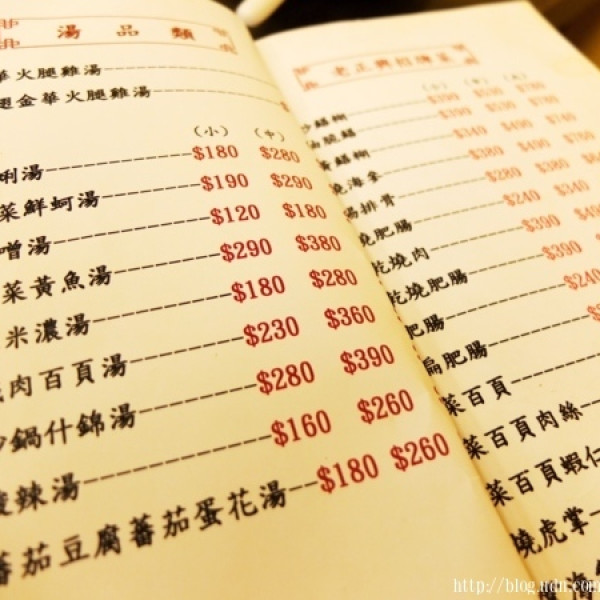 湯品類
華火腿雞湯
金華火腿雞湯
(小) (中)
湯 $180 $280
菜鮮蚵湯 $190 $290
噌湯 $120 $180
菜黃魚湯 $290 $380
米濃湯 $180 $280
肉百頁湯 $230 $360
鍋什錦湯 $280 $390
辣湯 $160 $260
蕃茄豆腐蕃茄蛋花湯 $180 $260
老正興招牌菜
(小) (中) (大)
$530 $780
$530 $780
$340 $490 $740
燒海參 $380 $490
排骨 $280 $380
燒肥腸 $240 $340
乾燒肉 $390
乾燒肥腸 $390
肥腸 $240
肥腸
菜百頁
菜百頁肉絲
菜百頁蝦仁
燒虎掌
http://blog.udn.com